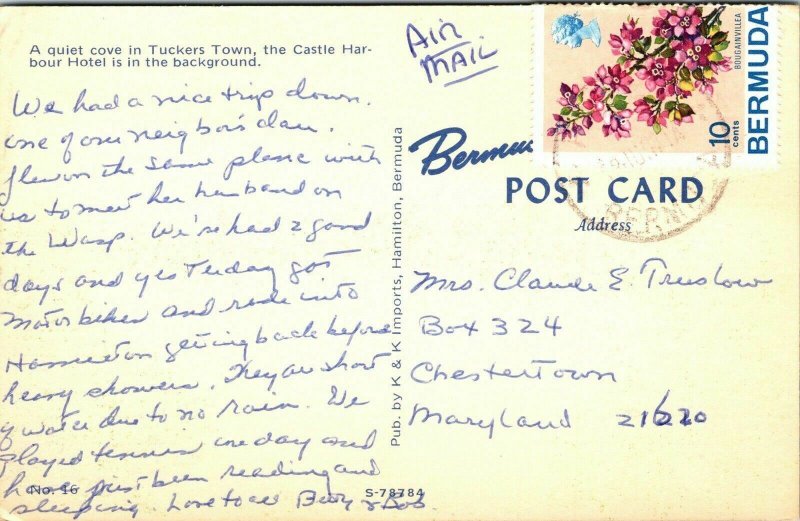 A quiet cove in Tuckers Town, the Castle Har-
bour Hotel is in the background.
We had a nice trip down.
one of our neighbor's dau.
flew on the same plane with
us to meet her husband on
the Wasp. We've had 2 good
days and yesterday got
Motorbikes and rode into
Hamilton getting back before
heavy showers. They are short
of water due to no rain. We
played tennis one day and
have just been reading and
sleeping. Love to all Betty & Bob.
No. 16
S-78784
Pub. by K & K Imports, Hamilton, Bermuda
AIR
MAIL
BOUGAINVILLEA
10 cents
BERMUDA
Bermu
POST CARD
Address
BERMU
Mrs. Claude E. Truslow
Box 324
Chestertown
Maryland 21620